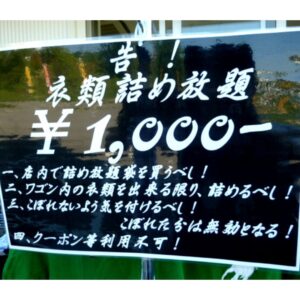 告!
衣類詰め放題
¥1,000ー
一、店内で詰め放題袋を買うべし!
二、ワゴン内の衣類を出来る限り、詰めるべし!
三、こぼれないよう気を付けるべし!
こぼれた分は無効となる!
四、クーポン等利用不可!